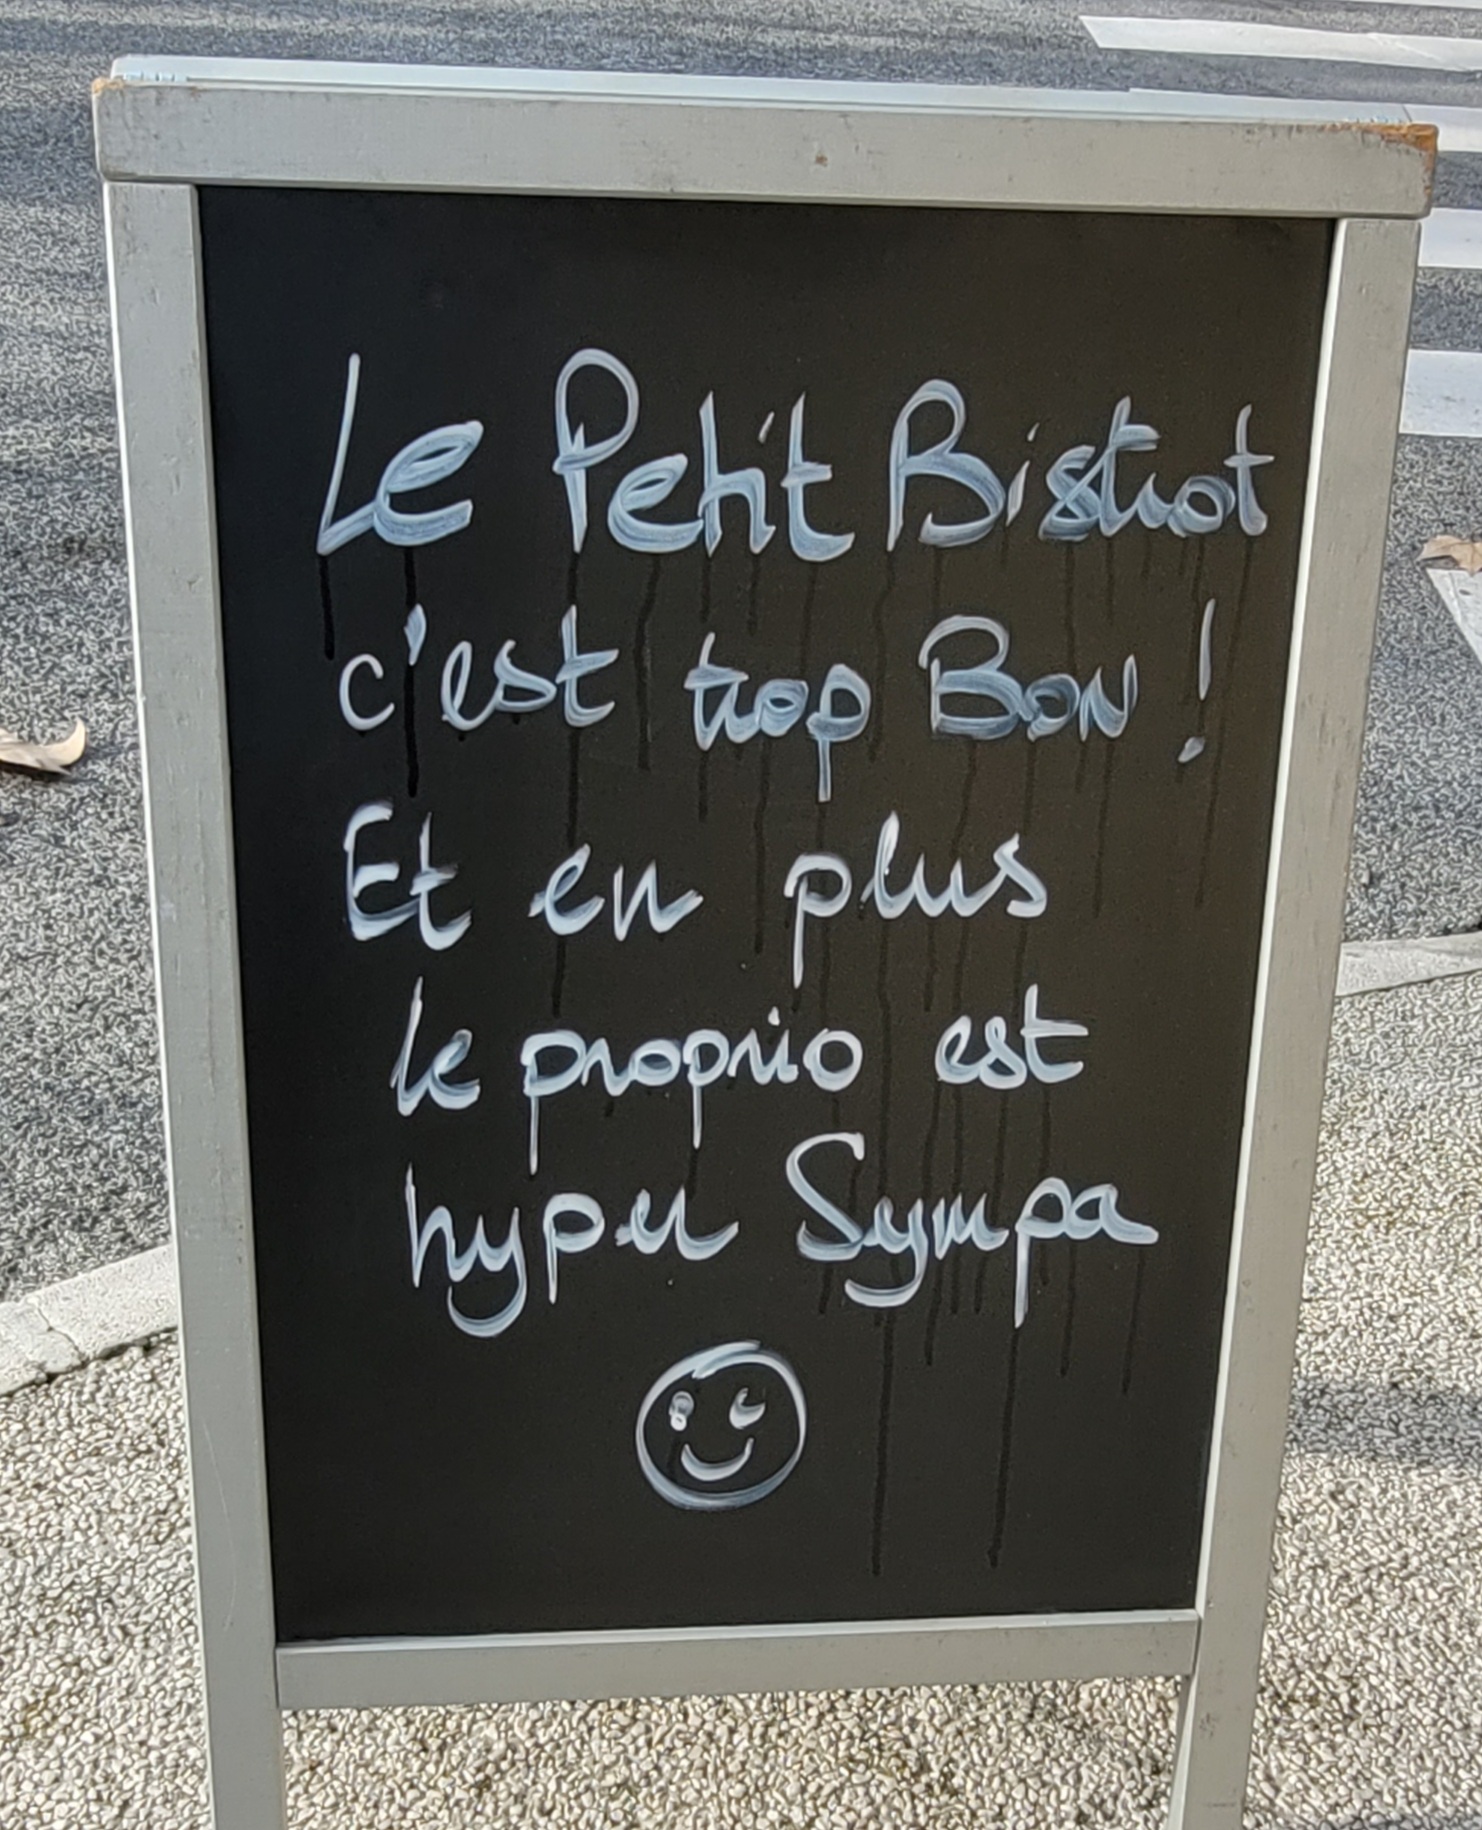 Le Petit Bistrot
c'est trop Bon !
Et en plus
le proprio est
hyper Sympa